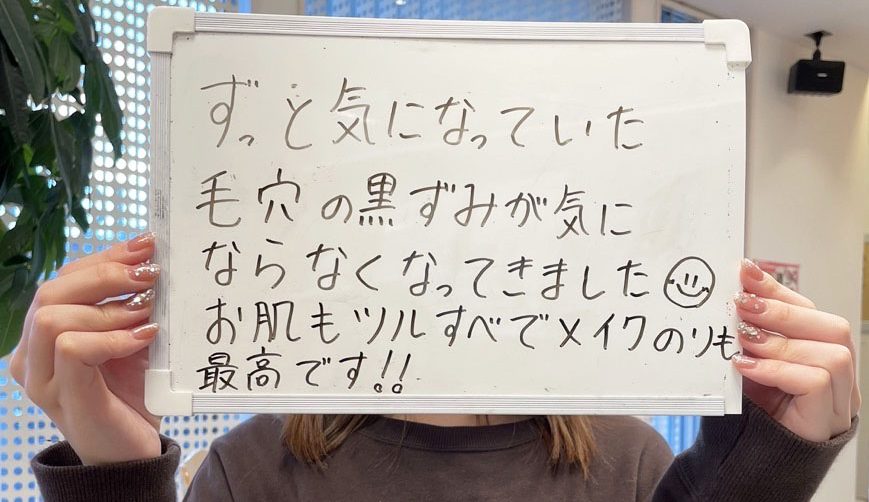 ずっと気になっていた
毛穴の黒ずみが気に
ならなくなってきました
お肌もツルすべでメイクのりも
最高です!!